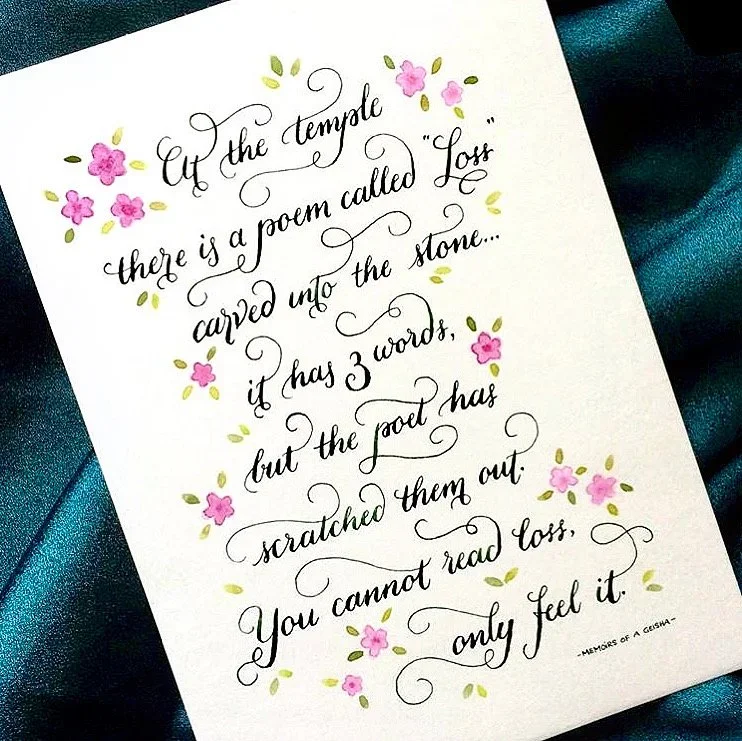 At the temple
there is a poem called "Loss"
carved into the stone...
it has 3 words,
but the poet has
scratched them out.
You cannot read loss,
only feel it.
-MEMOIRS OF A GEISHA-